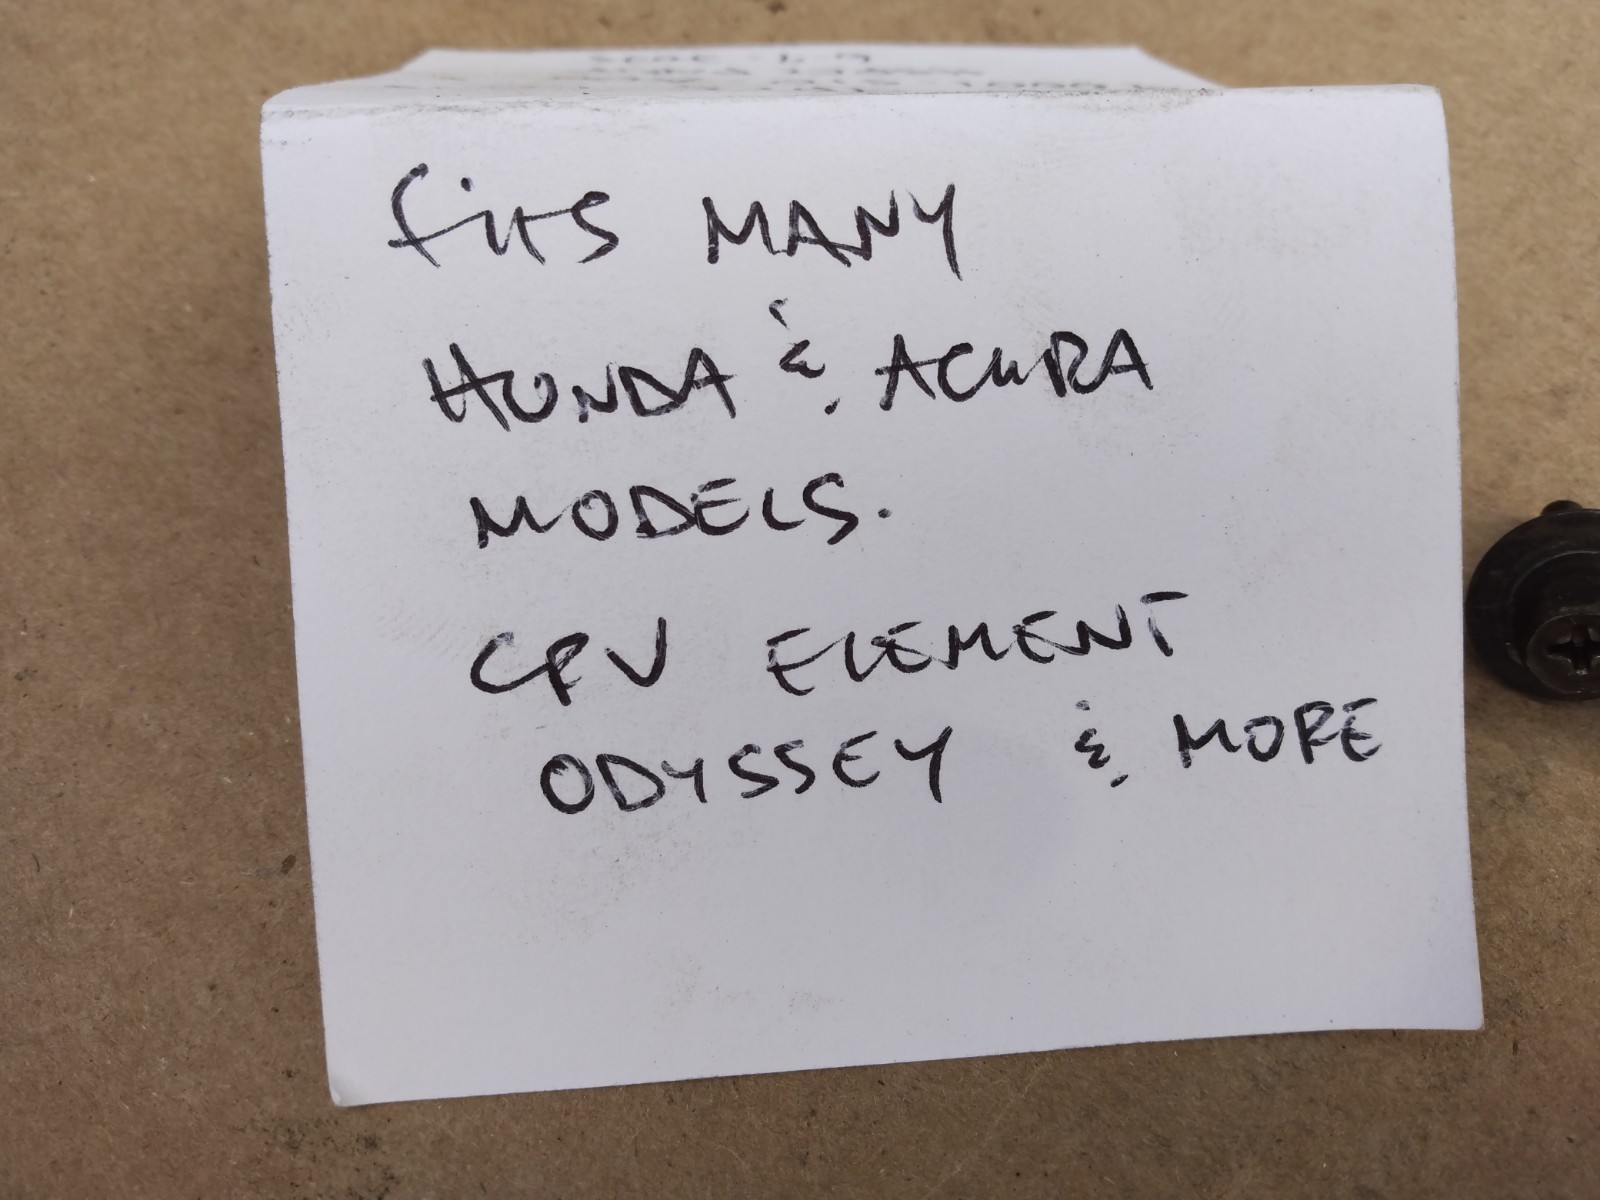 fits MANY
HONDA & ACURA
MODELS.
CRV ELEMENT
ODYSSEY & MORE